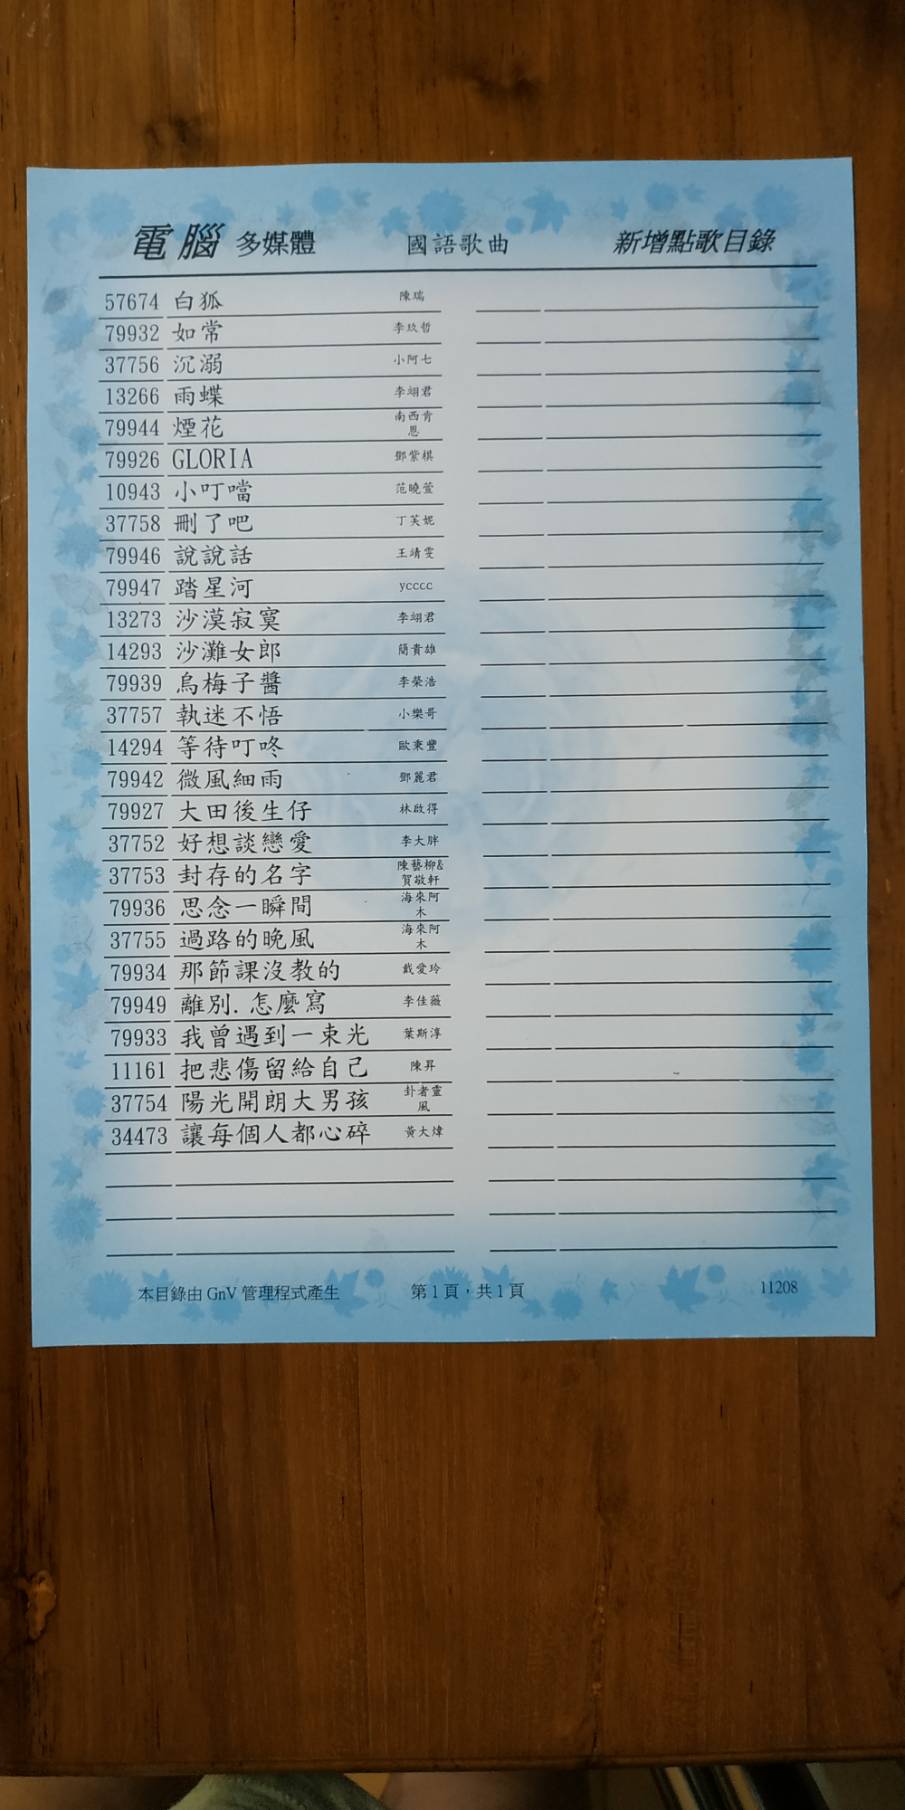 電腦 多媒體 國語歌曲 新增點歌目錄
57674 白狐 陳瑞
79932 如常 李玖哲
37756 沉溺 小阿七
13266 雨蝶 李翊君
79944 煙花 南西肯恩
79926 GLORIA 鄧紫棋
10943 小叮噹 范曉萱
37758 刪了吧 丁芙妮
79946 說說話 王靖雯
79947 踏星河 ycccc
13273 沙漠寂寞 李翊君
14293 沙灘女郎 簡貴雄
79939 烏梅子醬 李榮浩
37757 執迷不悟 小樂哥
14294 等待叮咚 歐秉豐
79942 微風細雨 鄧麗君
79927 大田後生仔 林啟得
37752 好想談戀愛 李大胖
37753 封存的名字 陳藝柳&賀敬軒
79936 思念一瞬間 海來阿木
37755 過路的晚風 海來阿木
79934 那節課沒教的 戴愛玲
79949 離別.怎麼寫 李佳薇
79933 我曾遇到一束光 葉斯淳
11161 把悲傷留給自己 陳昇
37754 陽光開朗大男孩 卦者靈風
34473 讓每個人都心碎 黃大煒
本目錄由 GnV 管理程式產生 第1頁，共1頁 11208